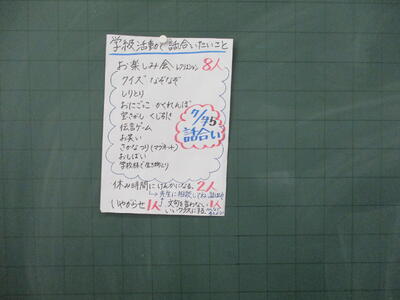 学級活動で話合いたいこと
お楽しみ会 レクリエーション 8人
クイズ なぞなぞ
しりとり
おにごっこ かくれんぼ
宝さがし くじ引き
伝言ゲーム
お笑い
さかなつり(マグネット)
おしばい
話合い
休み時間にけんかになる。2人
→先生に相談してね
いやがらせ 1人
文句を言わない 1人
いいクラスにする